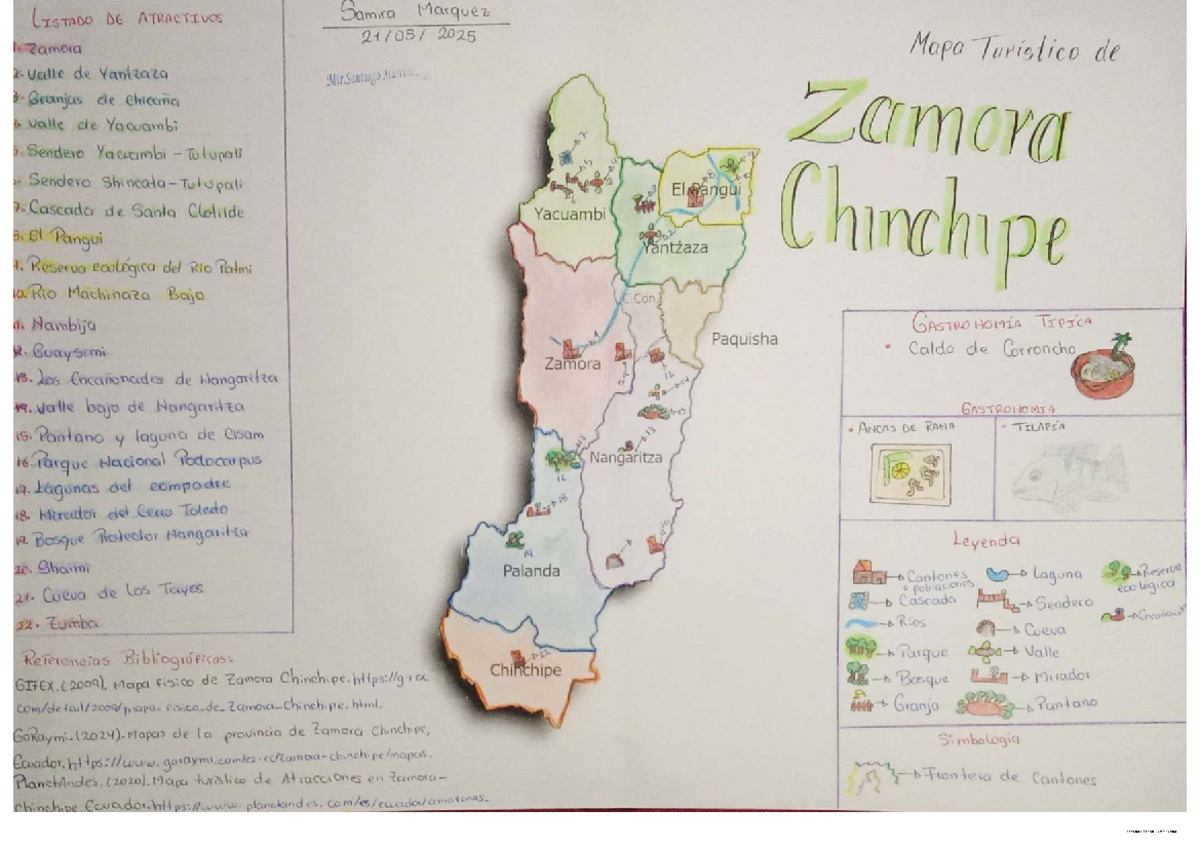 LISTADO DE ATRACTIVOS
1. Zamora
2. Valle de Yantzaza
3. Granjas de Chicaña
4. Valle de Yacuambi
5. Sendero Yacuambi - Tutupali
6. Sendero Shincata - Tutupali
7. Cascada de Santa Clotilde
8. El Pangui
9. Reserva ecológica del Río Palmi
10. Río Machinaza Bajo
11. Nambija
12. Guaysimi
13. Los Encañonados de Nangaritza
14. Valle bajo de Nangaritza
15. Pantano y laguna de Cisam
16. Parque Nacional Podocarpus
17. Lagunas del compadre
18. Mirador del Cerro Toledo
19. Bosque Protector Nangaritza
20. Shaimi
21. Cueva de Los Tayos
22. Zumba
Referencias Bibliográficas:
GIFEX. (2009). Mapa físico de Zamora Chinchipe. https://gifex.
com/detail/2009/mapa_fisico_de_Zamora_Chinchipe.html.
GoRaymi. (2024). Mapas de la provincia de Zamora Chinchipe,
Ecuador. https://www.goraymi.com/es-ec/zamora-chinchipe/mapas.
PlanetAndes. (2020). Mapa turístico de Atracciones en Zamora-
Chinchipe. Ecuador. https://www.planetandes.com/es/ecuador/amazonas.
Samira Marquez
21/05/2025
Mtr. Santiago
Mapa Turístico de
Zamora
Chinchipe
Yacuambi
El Pangui
Yantzaza
C.Con.
Paquisha
Zamora
Nangaritza
Palanda
Chinchipe
GASTRONOMÍA TIPICA
• Caldo de Corroncho
GASTRONOMÍA
• ANCAS DE RANA
• TILAPIA
Leyenda
Cantones o poblaciones
Cascada
Ríos
Parque
Bosque
Granja
Laguna
Sendero
Cueva
Valle
Mirador
Pantano
Reserva ecologica
Simbología
Frontera de Cantones